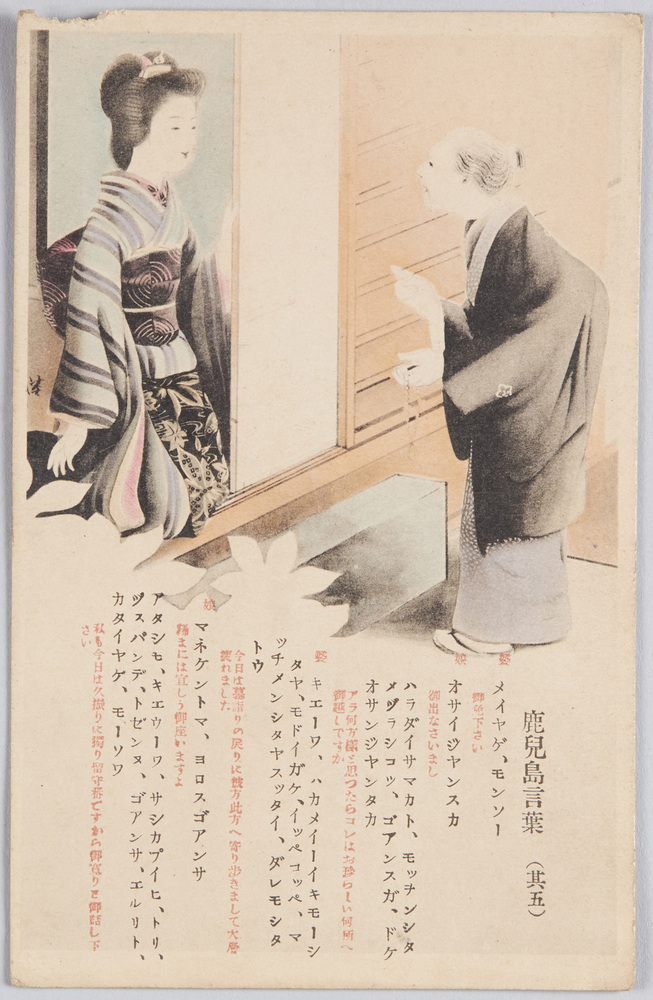 鹿兒島言葉（其五）
婆
メイヤゲ、モンソー
御免下さい
娘
オサイジヤンスカ
御出なさいまし
ハラダイサマカト、モッチンシタ
メヅラシコッ、ゴアンスガ、ドケ
オサンジヤンタカ
アラ何方樣と思つたらコレはお珍らしい何所へ
御越しですか
婆
キエーワ、ハカメイーイキモーシ
タヤ、モドイガケ、イッペコッペ、マ
ッチメンシタヤスッタイ、ダレモシタ
トウ
今日は墓詣りの戻りに彼方此方へ寄り歩きまして大層
疲れました
娘
マネケントマ、ヨロスゴアンサ
稀まには宜しう御座いますよ
アタシモ、キエウーワ、サシカブイヒ、トリ、
ヅスバンデ、トゼンヌ、ゴアンサ、エルリト、
カタイヤゲ、モーソワ
私も今日は久振りに獨り留守番ですから御寬りと御話し下
さい